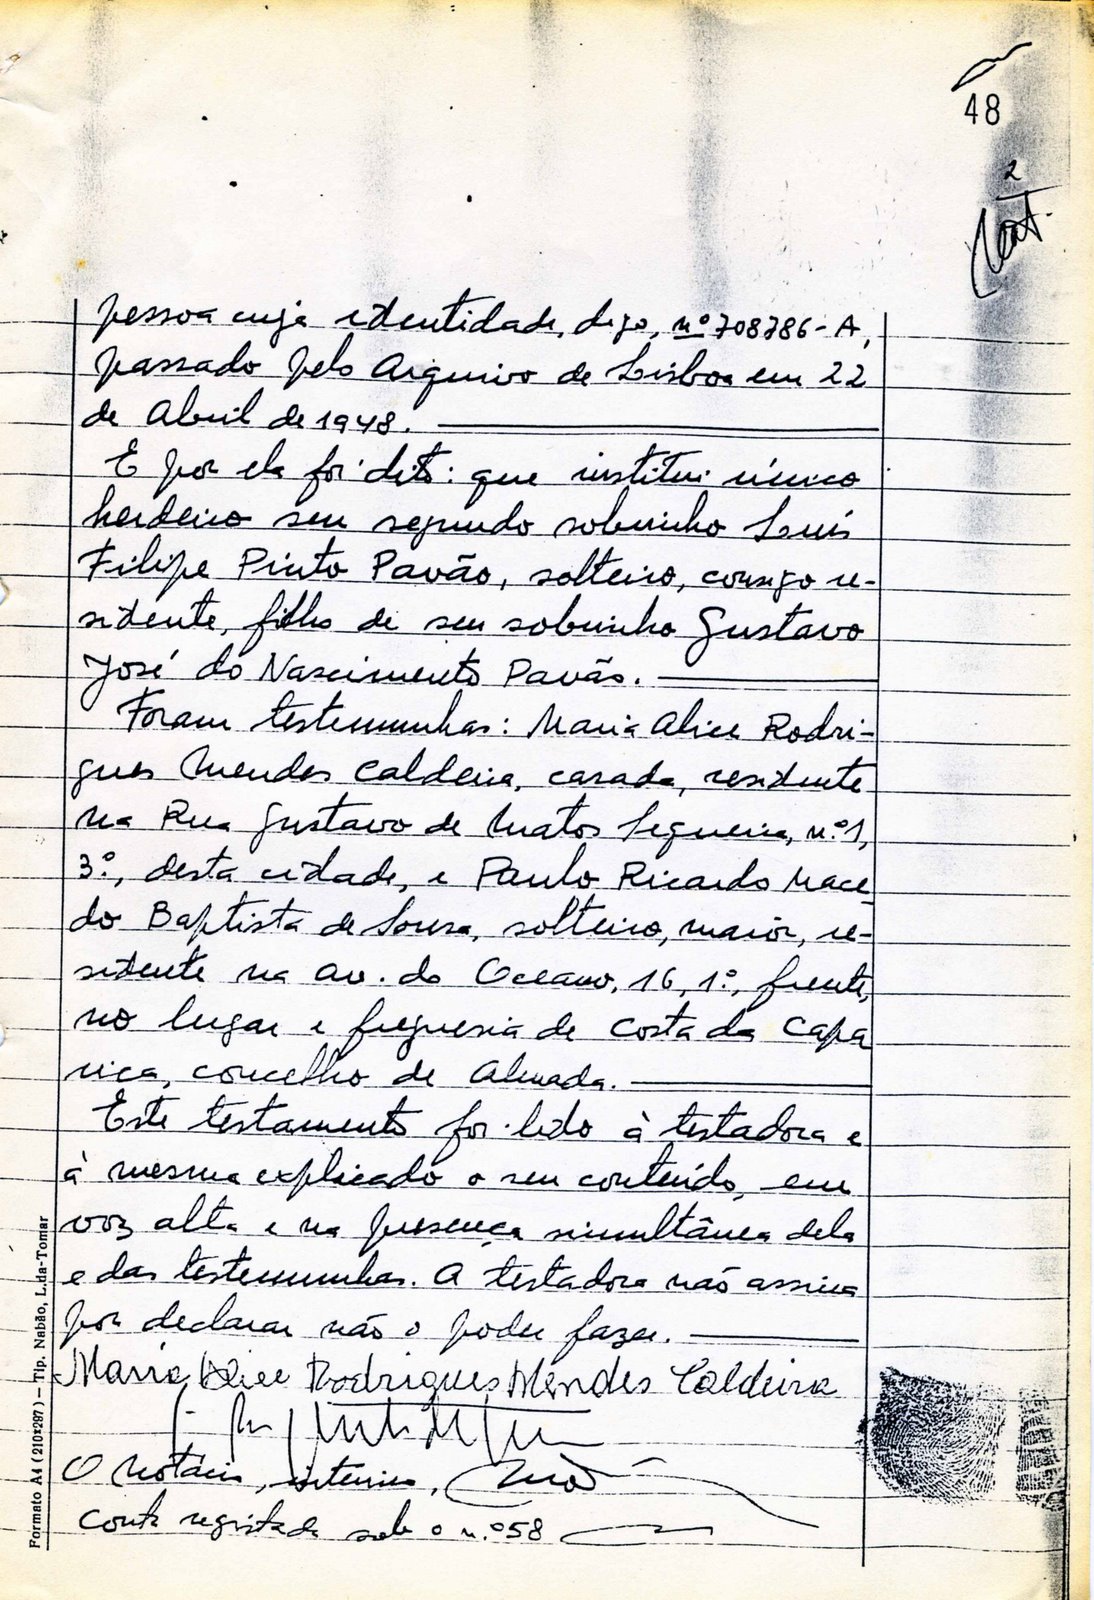 48
2
pessoa cuja identidade, digo, nº 708786-A,
passado pelo Arquivo de Lisboa em 22
de Abril de 1948.
E por ela foi dito: que institui único
herdeiro seu segundo sobrinho Luís
Filipe Pinto Pavão, solteiro, consigo re-
sidente, filho de seu sobrinho Gustavo
José do Nascimento Pavão.
Foram testemunhas: Maria Alice Rodri-
gues Mendes Caldeira, casada, residente
na Rua Gustavo de Matos Sequeira, n.º 1,
3.º, desta cidade, e Paulo Ricardo Mace
do Baptista de Sousa, solteiro, maior, re-
sidente na Av. do Oceano, 16, 1.º, frente,
no lugar e freguesia de Costa da Capa
rica, concelho de Almada.
Este testamento foi lido à testadora e
à mesma explicado o seu conteúdo, em
voz alta e na presença simultânea dela
e das testemunhas. A testadora não assina
por declarar não o poder fazer.
Maria Alice Rodrigues Mendes Caldeira
O Notário, interino,
Conta registada sob o n.º 58
Formato A4 (210x297) — Tip. Nabão, L.da-Tomar